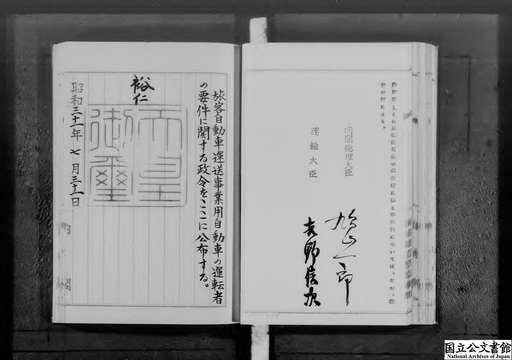 内閣総理大臣
鳩山一郎
運輸大臣
吉野信次
旅客自動車運送事業用自動車の運転者
の要件に関する政令をここに公布する。
裕仁
天皇
御璽
昭和三十一年七月三十一日
国立公文書館
National Archives of Japan